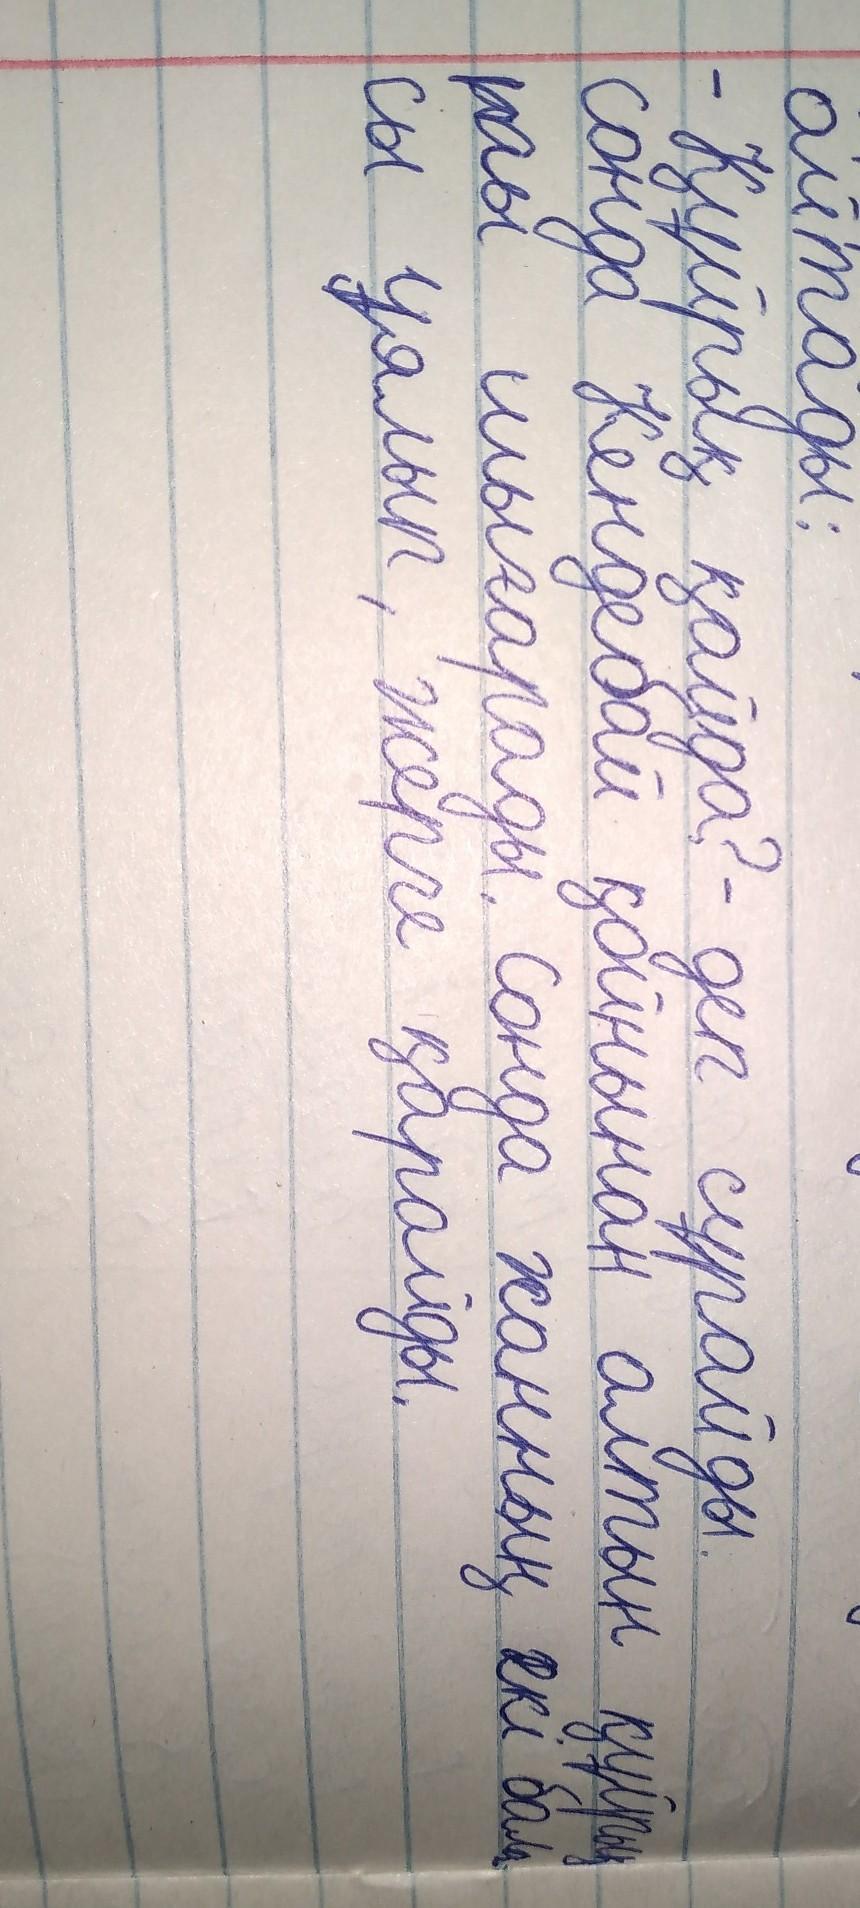 айтады:
- Құйрық қайда? - деп сұрайды.
сонда Кендебай қойнынан алтын құйрық
ты шығарады. Сонда ханның екі бала
сы ұялып, жерге қарайды.